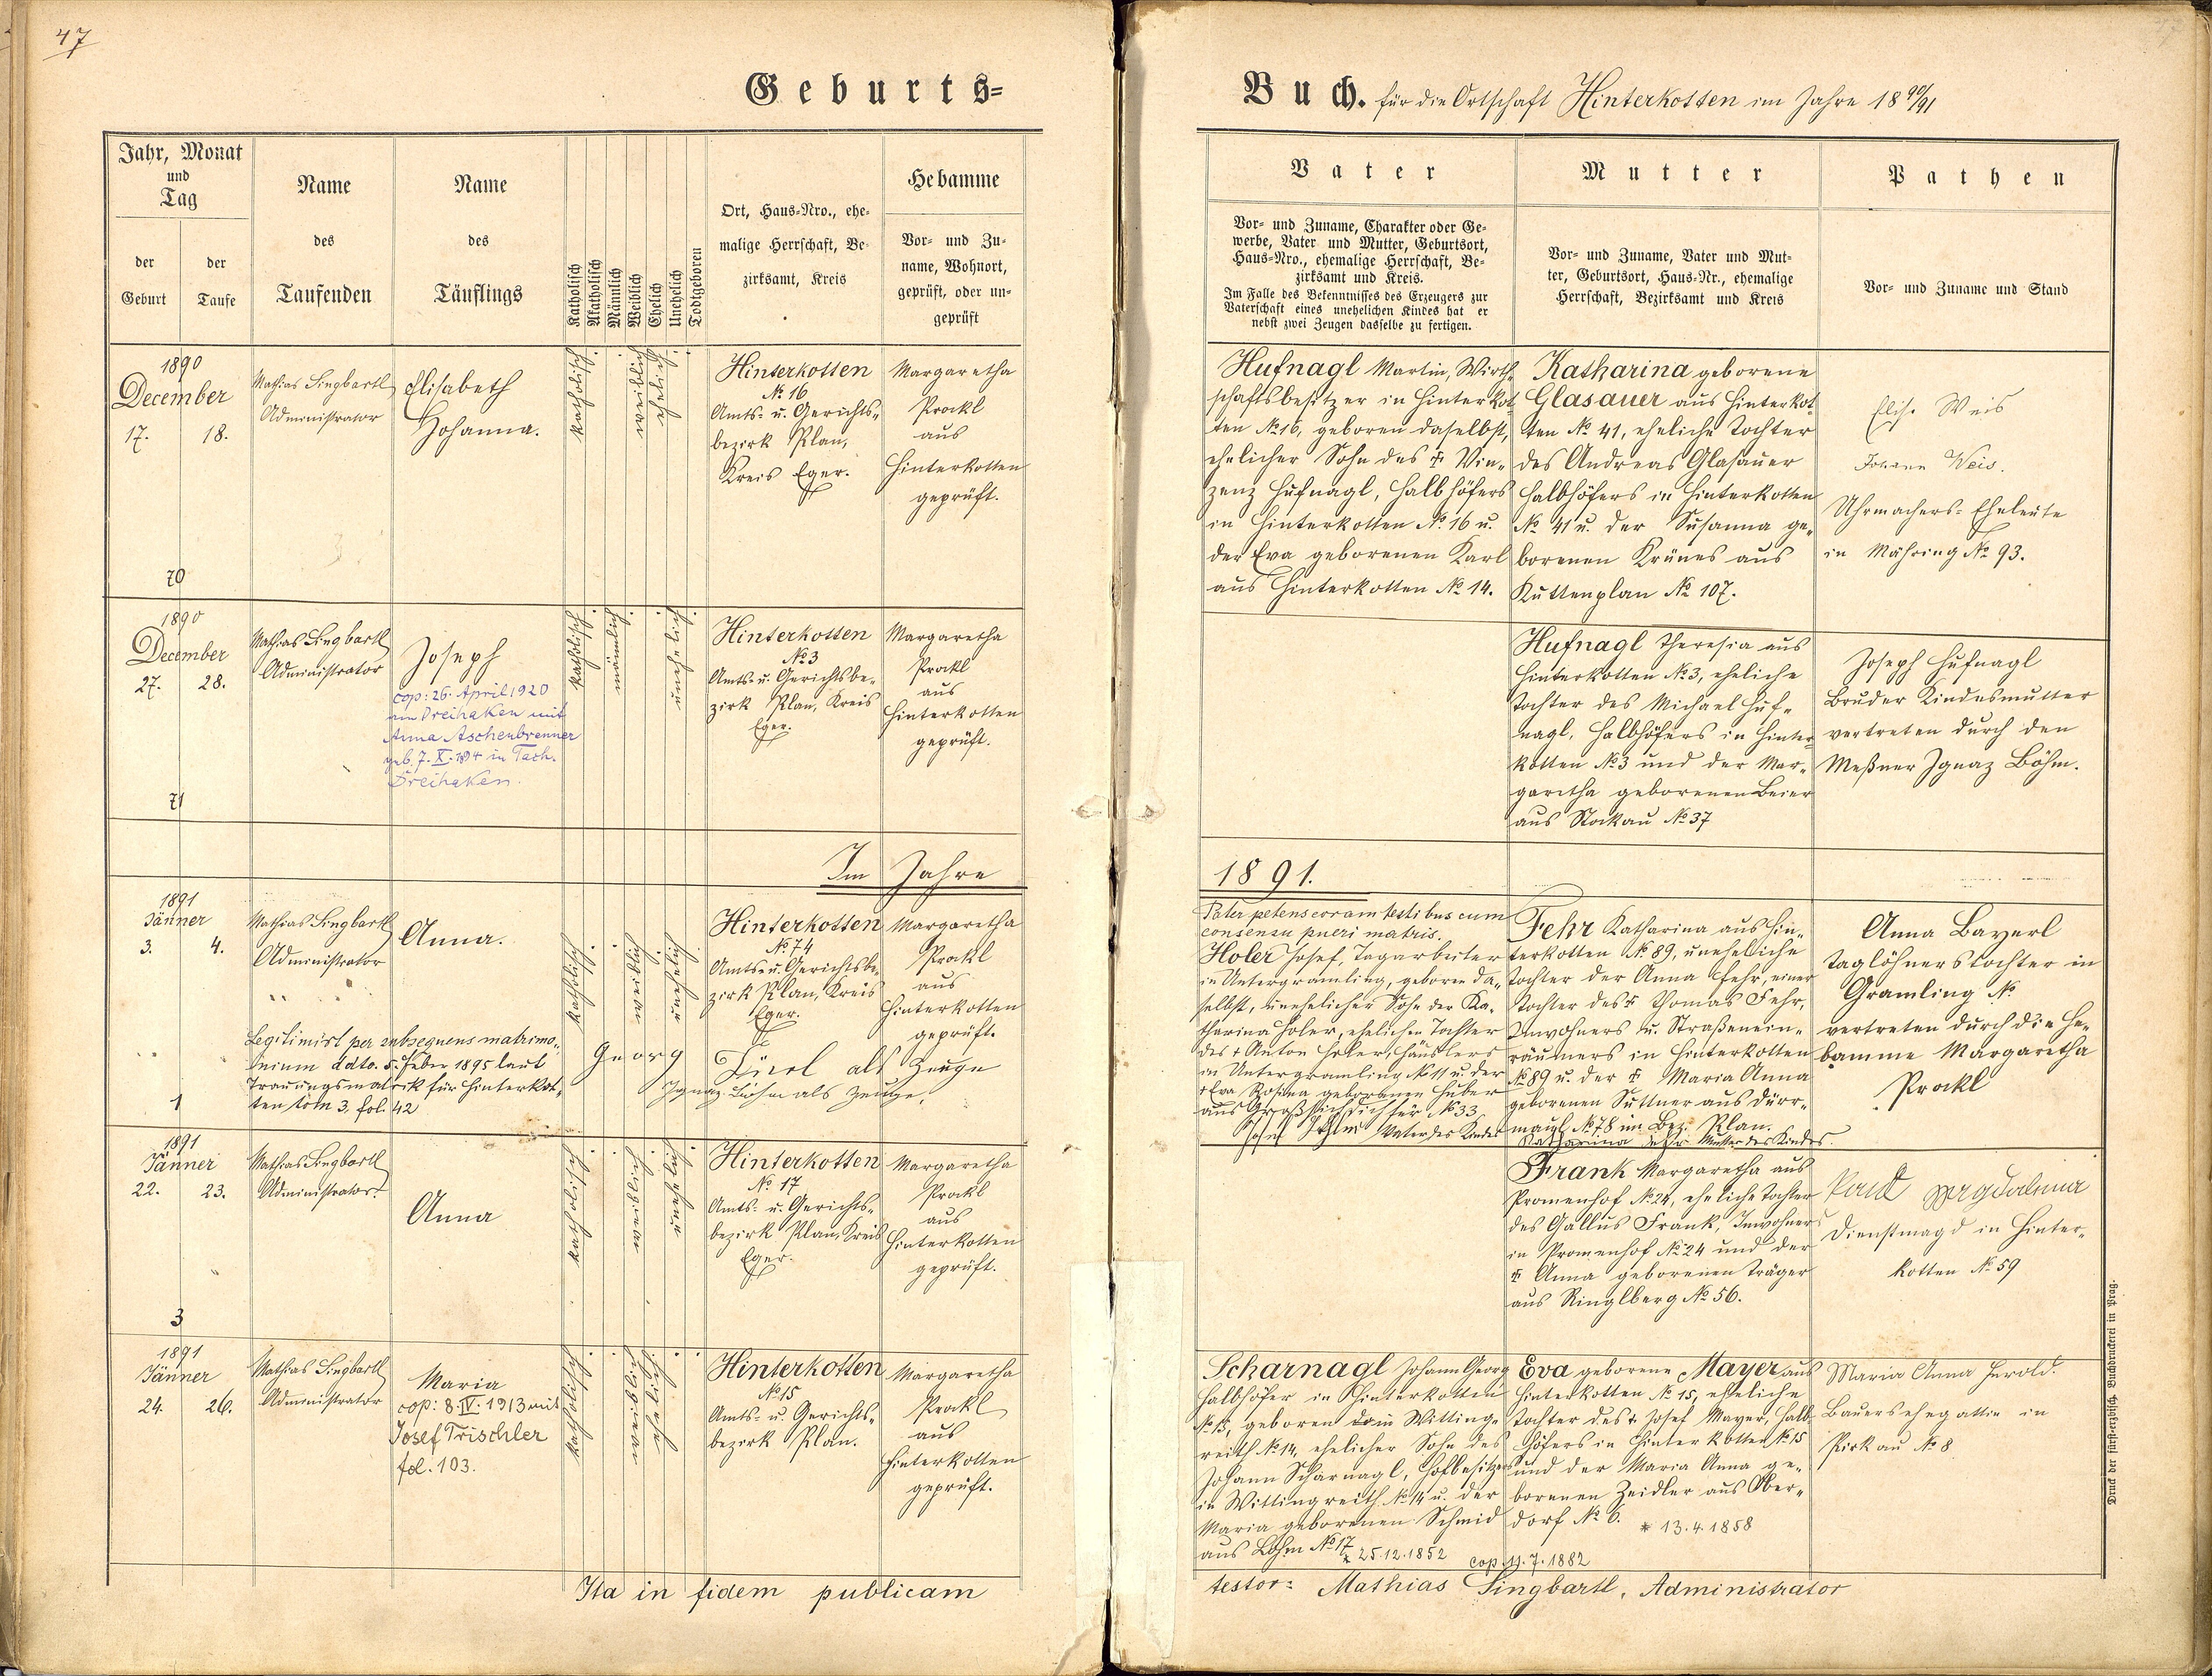 47
Geburts-
Buch. für die Ortschaft Hinterkotten im Jahre 1890/91
Jahr, Monat
und
Tag
der
Geburt
der
Taufe
Name
des
Taufenden
Name
des
Täuflings
Katholisch
Akatholisch
Männlich
Weiblich
Ehelich
Unehelich
Todtgeboren
Ort, Haus-Nro., ehe-
malige Herrschaft, Be-
zirksamt, Kreis
Hebamme
Vor- und Zu-
name, Wohnort,
geprüft, oder un-
geprüft
Vater
Vor- und Zuname, Charakter oder Ge-
werbe, Vater und Mutter, Geburtsort,
Haus-Nro., ehemalige Herrschaft, Be-
zirksamt und Kreis.
Im Falle des Bekenntnisses des Erzeugers zur
Vaterschaft eines unehelichen Kindes hat er
nebst zwei Zeugen dasselbe zu fertigen.
Mutter
Vor- und Zuname, Vater und Mut-
ter, Geburtsort, Haus-Nr., ehemalige
Herrschaft, Bezirksamt und Kreis
Pathen
Vor- und Zuname und Stand
1890
December
17. 18.
70
Mathias Singbartl
Administrator
Elisabeth
Johanna.
katholisch
weiblich
ehelich
Hinterkotten
No 16
Amts- u. Gerichts-
bezirk Plan,
Kreis Eger.
Margaretha
Prockl
aus
Hinterkotten
geprüft.
Hufnagl Martin, Wirth-
schaftsbesitzer in Hinterkot-
ten No 16, geboren daselbst,
ehelicher Sohn des † Vin-
zenz Hufnagl, Halbhöfers
in Hinterkotten No 16 u.
der Eva geborenen Karl
aus Hinterkotten No 14.
Katharina geborene
Glasauer aus Hinterkot-
ten No 41, eheliche Tochter
des Andreas Glasauer
Halbhöfers in Hinterkotten
No 41 u. der Susanna ge-
borenen Krünes aus
Kuttenplan No 107.
Elis. Weis
Johann Weis.
Uhrmachers-Eheleute
in Mähring No 93.
1890
December
27. 28.
71
Mathias Singbartl
Administrator
Joseph
cop: 26. April 1920
in Dreihaken mit
Anna Aschenbrenner
geb. 7. X. 1894 in Tach.
Dreihaken.
katholisch
männlich
unehelich
Hinterkotten
No 3
Amts- u. Gerichtsbe-
zirk Plan, Kreis
Eger.
Margaretha
Prockl
aus
Hinterkotten
geprüft.
Hufnagl Theresia aus
Hinterkotten No 3, eheliche
Tochter des Michael Huf-
nagl, Halbhöfers in Hinter-
kotten No 3 und der Mar-
garetha geborenen Beier
aus Stockau No 37
Joseph Hufnagl
Bruder Kindesmutter
vertreten durch den
Meßner Ignaz Böhm.
Im Jahre
1891.
1891
Jänner
3. 4.
1
Mathias Singbartl
Administrator
Anna.
Legitimirt per subsequens matrimo-
nium ddto. 5. Feber 1895 laut
Trauungsmatrik für Hinterkot-
ten tom 3, fol. 42
katholisch
weiblich
unehelich
Hinterkotten
No 74
Amts- u. Gerichtsbe-
zirk Plan, Kreis
Eger.
Margaretha
Prockl
aus
Hinterkotten
geprüft.
Georg Türl als Zeuge
Ignaz Böhm als Zeuge.
Pater petens coram testibus cum
consensu pueri matris.
Holer Josef, Tagarbeiter
in Untergramling, geboren da-
selbst, unehelicher Sohn der Ka-
tharina Holer, ehelichen Tochter
des † Anton Holer, Häuslers
in Untergramling No 11 u. der
† Eva Rosina geborenen Huber
aus No 33
Josef Vater des Kindes
Fehr Katharina aus Hin-
terkotten No 89, uneheliche
Tochter der Anna Fehr, einer
Tochter des † Thomas Fehr,
Inwohners u. Straßenein-
räumers in Hinterkotten
No 89 u. der † Maria Anna
geborenen Suttner aus Dürr-
maul No 78 im Bez. Plan.
Katharina Fehr Mutter des Kindes.
Anna Bayerl
Taglöhnerstochter in
Gramling No
vertreten durch die He-
bamme Margaretha
Prockl
1891
Jänner
22. 23.
3
Mathias Singbartl
Administrator.
Anna
katholisch
weiblich
unehelich
Hinterkotten
No 17
Amts- u. Gerichts-
bezirk Plan, Kreis
Eger.
Margaretha
Prockl
aus
Hinterkotten
geprüft.
Frank Margaretha aus
Promenhof No 24, eheliche Tochter
des Gallus Frank, Inwohners
in Promenhof No 24 und der
† Anna geborenen Träger
aus Ringlberg No 56.
Magdalena
Dienstmagd in Hinter-
kotten No 59
1891
Jänner
24. 26.
Mathias Singbartl
Administrator
Maria
cop: 8. IV. 1913 mit
Josef Trischler
fol. 103.
katholisch
weiblich
ehelich
Hinterkotten
No 15
Amts- u. Gerichts-
bezirk Plan.
Margaretha
Prockl
aus
Hinterkotten
geprüft.
Scharnagl Johann Georg
Halbhöfer in Hinterkotten
No 15, geboren in Wittinge-
reith No 14, ehelicher Sohn des
Johann Scharnagl, Hofbesitzers
in Wittingreith No 14 u. der
Maria geborenen Schmid
aus Lohm No 17
* 25.12.1852
cop. 11.7.1882
Eva geborene Mayer aus
Hinterkotten No 15, eheliche
Tochter des † Josef Mayer, Halb-
höfers in Hinterkotten No 15
und der Maria Anna ge-
borenen Zeidler aus Ober-
dorf No 6.
* 13.4.1858
Maria Anna Herold.
Bauersehegattin in
Pirkau No 8
Ita in fidem publicam
testor: Mathias Singbartl, Administrator
Druck der fürst-erzbisch. Buchdruckerei in Prag.